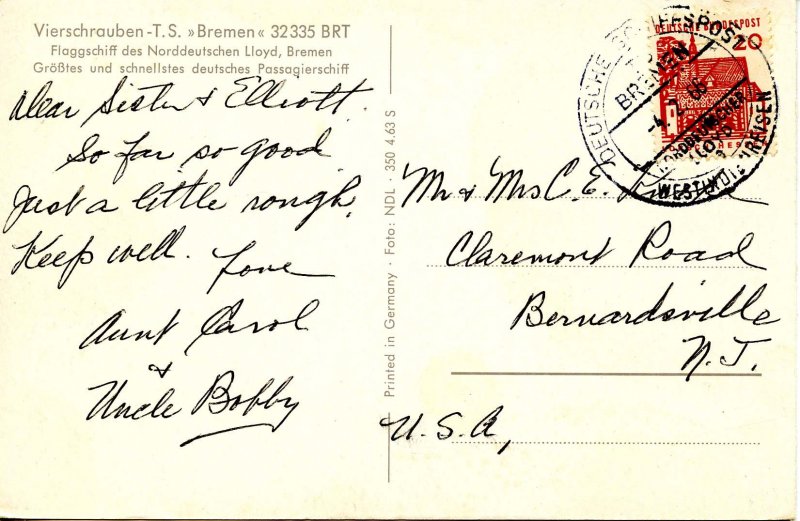 Vierschrauben-T.S. »Bremen« 32335 BRT
Flaggschiff des Norddeutschen Lloyd, Bremen
Größtes und schnellstes deutsches Passagierschiff
Dear Sister & Elliott.
So far so good
Just a little rough.
Keep well. Love
Aunt Carol
&
Uncle Bobby
Printed in Germany · Foto: NDL · 350 4.63 S
DEUTSCHE BUNDESPOST
20
DEUTSCHE SCHIFFSPOST
BREMEN
NORDDEUTSCHER
LLOYD
WESTINDIENREISEN
Mr & Mrs C. E.
Claremont Road
Bernardsville
N. J.
U. S. A,